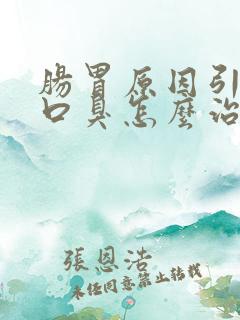 腸胃原因引
口臭怎麽治
張恩浩
未经同意禁止转载